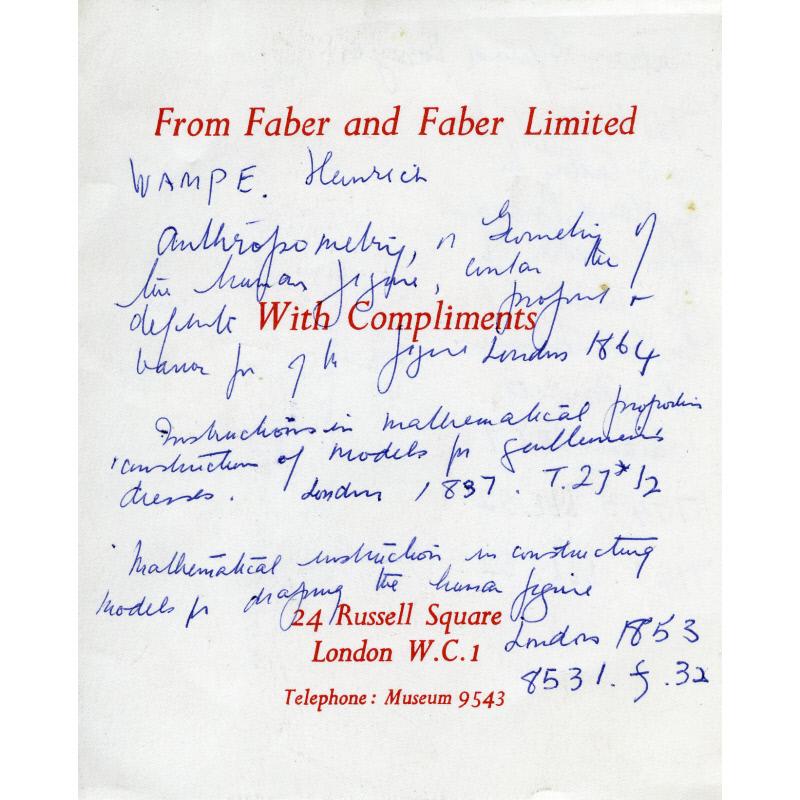 From Faber and Faber Limited
WAMPE. Heinrich
Anthropometry, or Geometry of
the human figure, contan the
With Compliments
figure London 1864
Instructions in mathematical proportion
construction of models for gentlemen's
dresses. London 1837. T.27*12
Mathematical instruction in constructing
models for draping the human figure
24 Russell Square
London 1853
London W.C.1
8531. f. 32
Telephone: Museum 9543